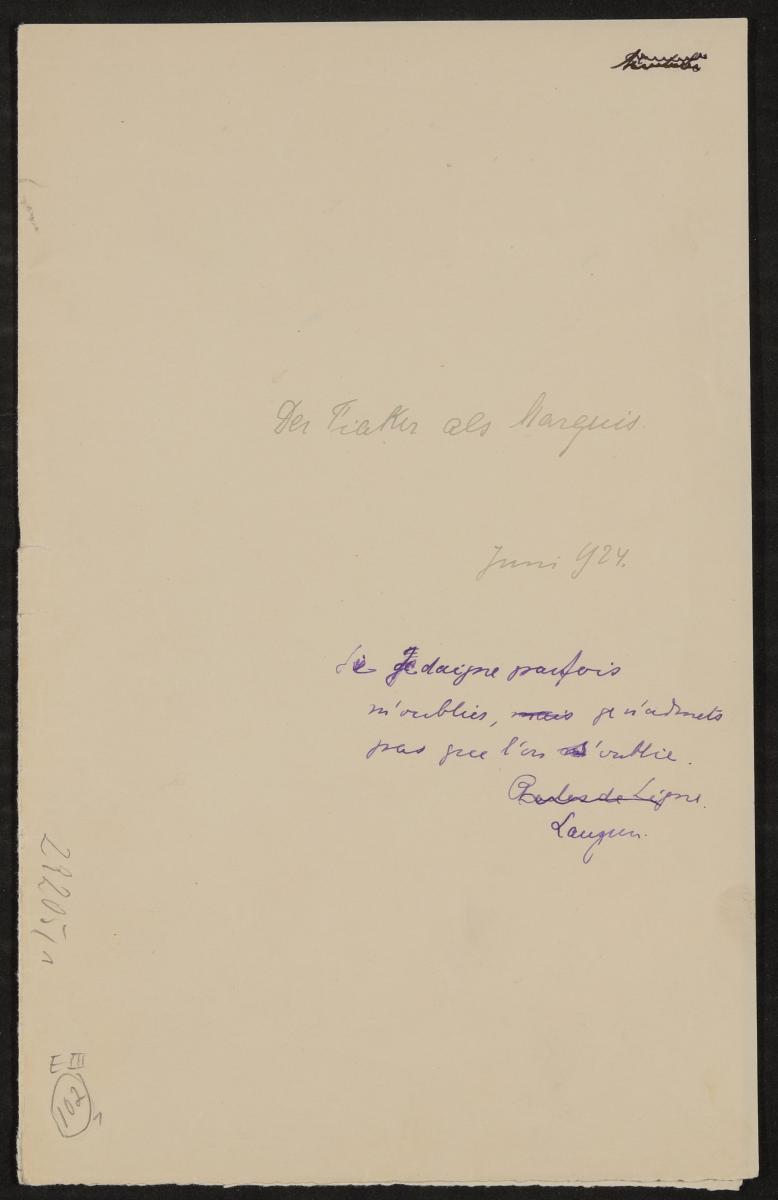 Der Fiaker als Marquis.
Juni 924.
Si Je daigne parfois
m'oublier, mais je n'admets
pas que l'on s'oublie.
de Ligne.
Lauzun.
292051
III
E
102